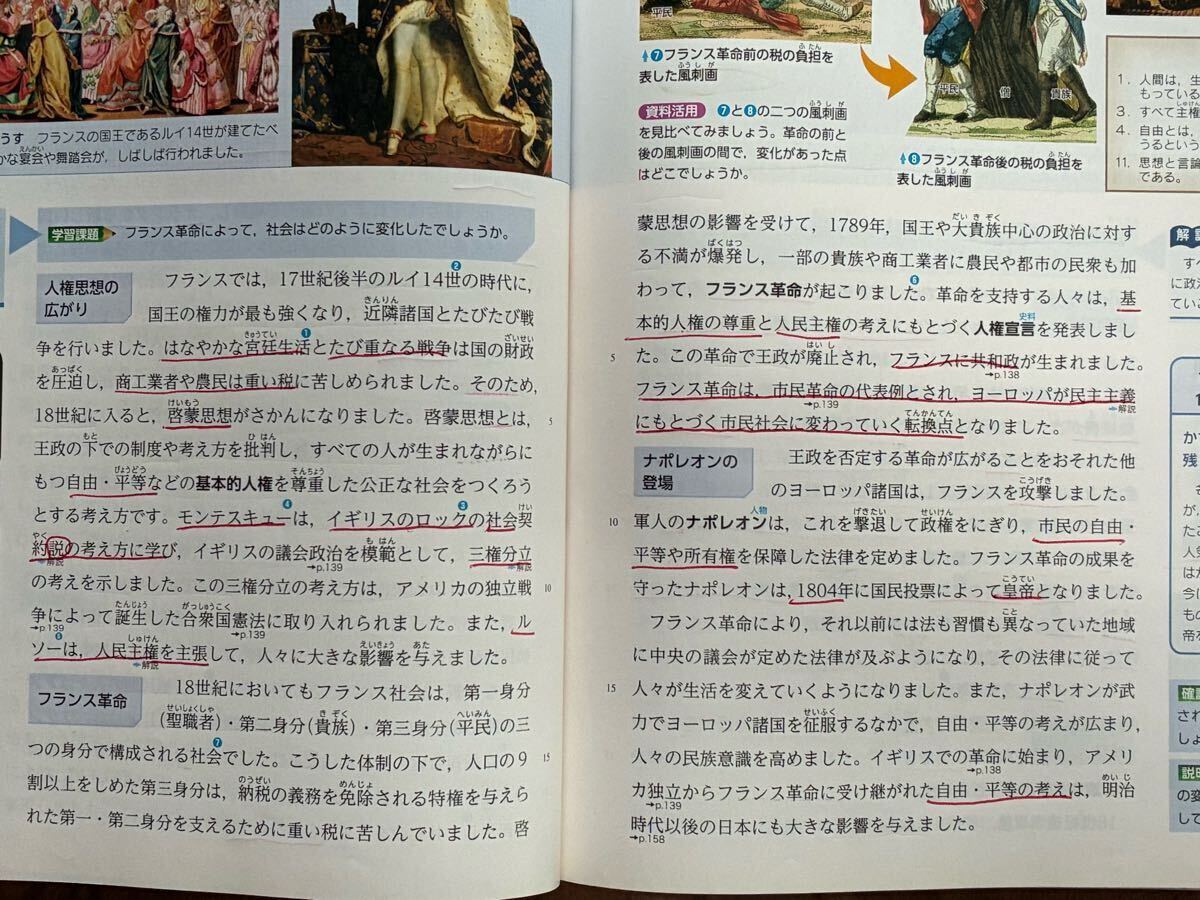 うす フランスの国王であるルイ14世が建てたベ
かな宴会や舞踏会が，しばしば行われました。
学習課題 フランス革命によって，社会はどのように変化したでしょうか。
人権思想の
広がり
フランスでは，17世紀後半のルイ14世の時代に，
国王の権力が最も強くなり，近隣諸国とたびたび戦
争を行いました。はなやかな宮廷生活とたび重なる戦争は国の財政
を圧迫し，商工業者や農民は重い税に苦しめられました。そのため，
18世紀に入ると，啓蒙思想がさかんになりました。啓蒙思想とは，
王政の下での制度や考え方を批判し，すべての人が生まれながらに
もつ自由・平等などの基本的人権を尊重した公正な社会をつくろう
とする考え方です。モンテスキューは，イギリスのロックの社会契
約説の考え方に学び，イギリスの議会政治を模範として，三権分立
の考えを示しました。この三権分立の考え方は，アメリカの独立戦
争によって誕生した合衆国憲法に取り入れられました。また，ル
ソーは，人民主権を主張して，人々に大きな影響を与えました。
フランス革命
18世紀においてもフランス社会は，第一身分
(聖職者)・第二身分(貴族)・第三身分(平民)の三
つの身分で構成される社会でした。こうした体制の下で，人口の9
割以上をしめた第三身分は，納税の義務を免除される特権を与えら
れた第一・第二身分を支えるために重い税に苦しんでいました。啓
平民
7 フランス革命前の税の負担を
表した風刺画
資料活用 7と8の二つの風刺画
を見比べてみましょう。革命の前と
後の風刺画の間で，変化があった点
はどこでしょうか。
平民 僧 貴族
8 フランス革命後の税の負担を
表した風刺画
1．人間は，生
もっている
3．すべて主権
4．自由とは，
うるという
11．思想と言論
である。
蒙思想の影響を受けて，1789年，国王や大貴族中心の政治に対す
る不満が爆発し，一部の貴族や商工業者に農民や都市の民衆も加
わって，フランス革命が起こりました。革命を支持する人々は，基
本的人権の尊重と人民主権の考えにもとづく人権宣言を発表しまし
た。この革命で王政が廃止され，フランスに共和政が生まれました。
フランス革命は，市民革命の代表例とされ，ヨーロッパが民主主義
にもとづく市民社会に変わっていく転換点となりました。
ナポレオンの
登場
王政を否定する革命が広がることをおそれた他
のヨーロッパ諸国は，フランスを攻撃しました。
軍人のナポレオンは，これを撃退して政権をにぎり，市民の自由・
平等や所有権を保障した法律を定めました。フランス革命の成果を
守ったナポレオンは，1804年に国民投票によって皇帝となりました。
フランス革命により，それ以前には法も習慣も異なっていた地域
に中央の議会が定めた法律が及ぶようになり，その法律に従って
人々が生活を変えていくようになりました。また，ナポレオンが武
力でヨーロッパ諸国を征服するなかで，自由・平等の考えが広まり，
人々の民族意識を高めました。イギリスでの革命に始まり，アメリ
カ独立からフランス革命に受け継がれた自由・平等の考えは，明治
時代以後の日本にも大きな影響を与えました。
→p.158